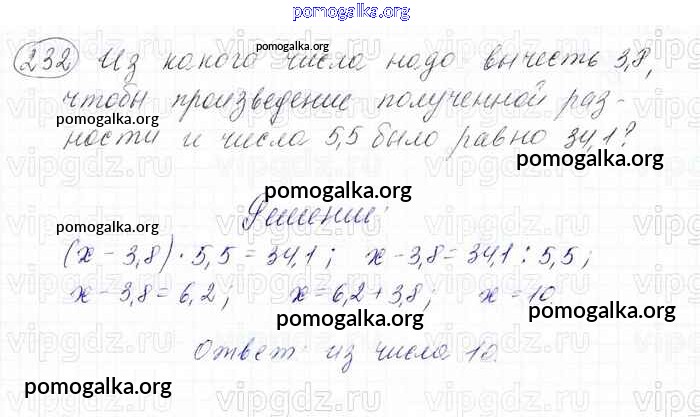 pomogalka.org
232 Из какого числа надо вычесть 3,8,
pomogalka.org
чтобы произведение полученной раз-
pomogalka.org
ности и числа 5,5 было равно 34,1?
pomogalka.org
pomogalka.org
Решение:
pomogalka.org
pomogalka.org
(x - 3,8) · 5,5 = 34,1; x - 3,8 = 34,1 : 5,5;
x - 3,8 = 6,2; x = 6,2 + 3,8; x = 10
pomogalka.org
Ответ: из числа 10.
pomogalka.org
pomogalka.org
vipgdz.ru